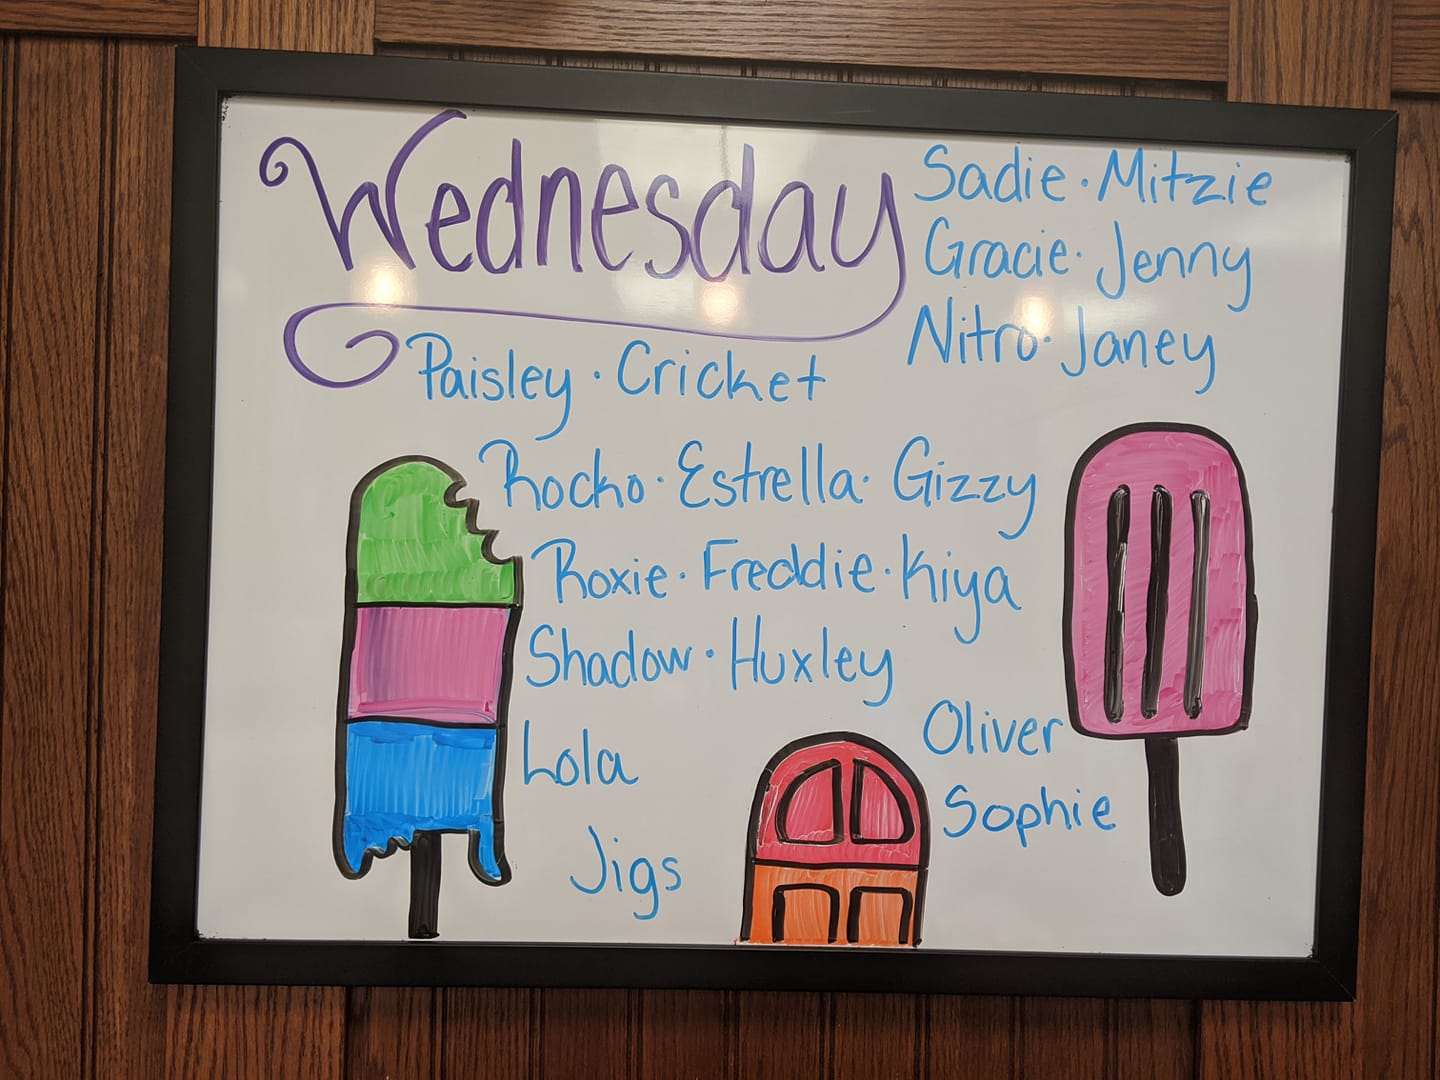 Wednesday
Sadie · Mitzie
Gracie · Jenny
Nitro · Janey
Paisley · Cricket
Rocko · Estrella · Gizzy
Roxie · Freddie · Kiya
Shadow · Huxley
Lola
Oliver
Sophie
Jigs